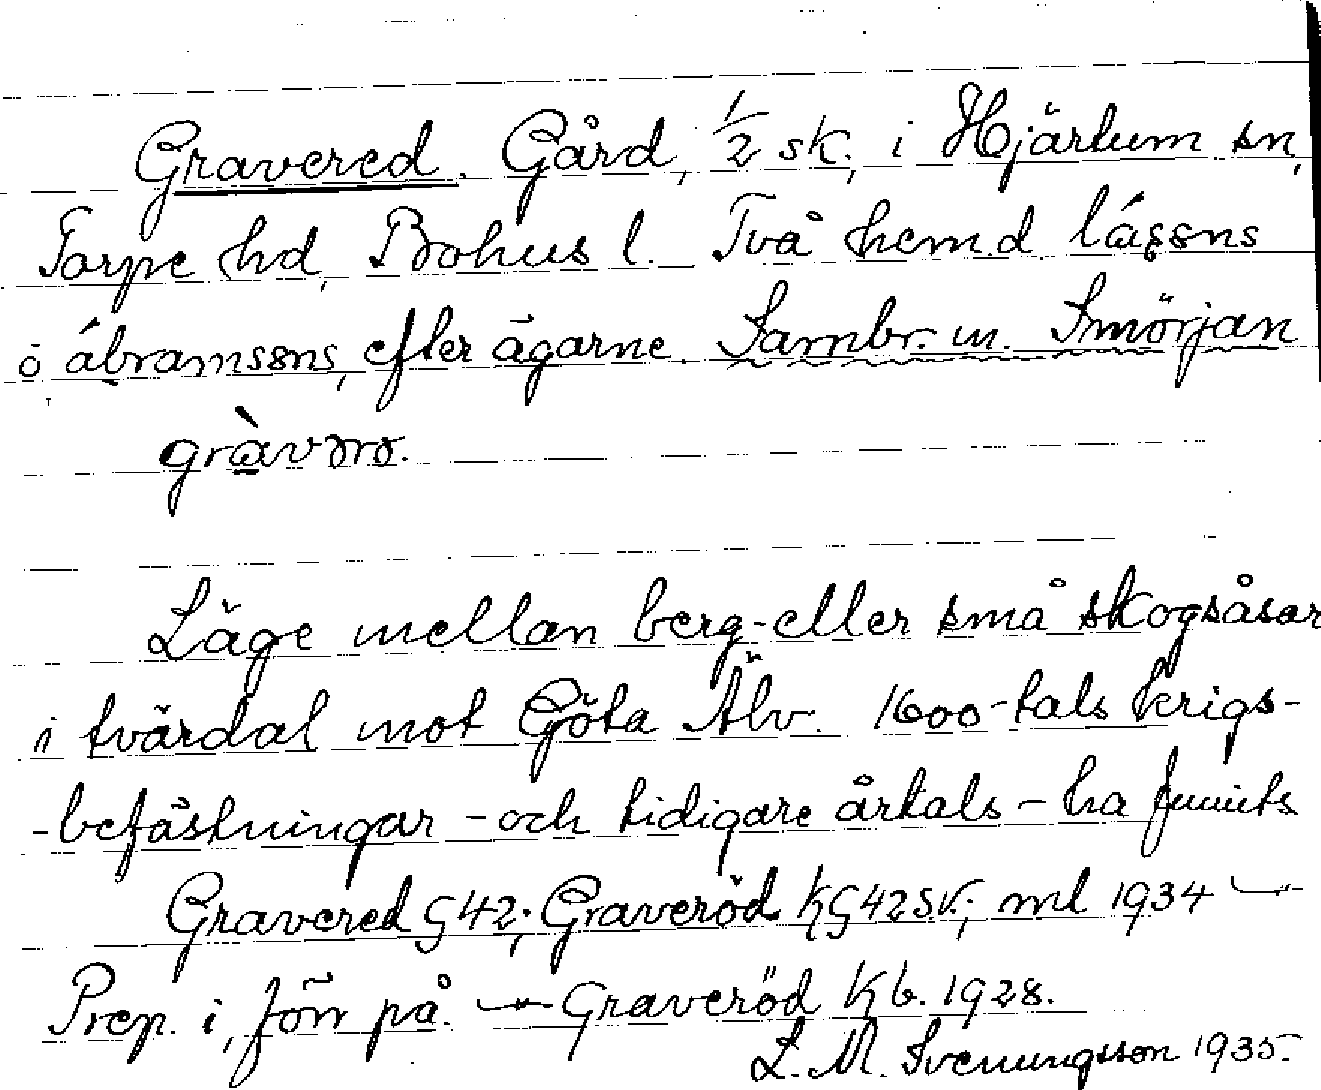 Gravered. Gård, 1/2 sk., i Hjärtum sn,
Torpe hd, Bohus l. Två hem.d. lássns
o ábramssns, efter ägarne. Sambr. m. Smörjan
gràvərə.
Läge mellan berg- eller små skogsåsar
i tvärdal mot Göta Älv. 1600-tals krigs-
-befästningar - och tidigare årtals - ha funnits
Gravered G 42; Graveröd KG 42 SV.; ml 1934 -"-
Prep. i, förr på. -"- Graveröd Kb. 1928.
L. M. Svenungsson 1935.